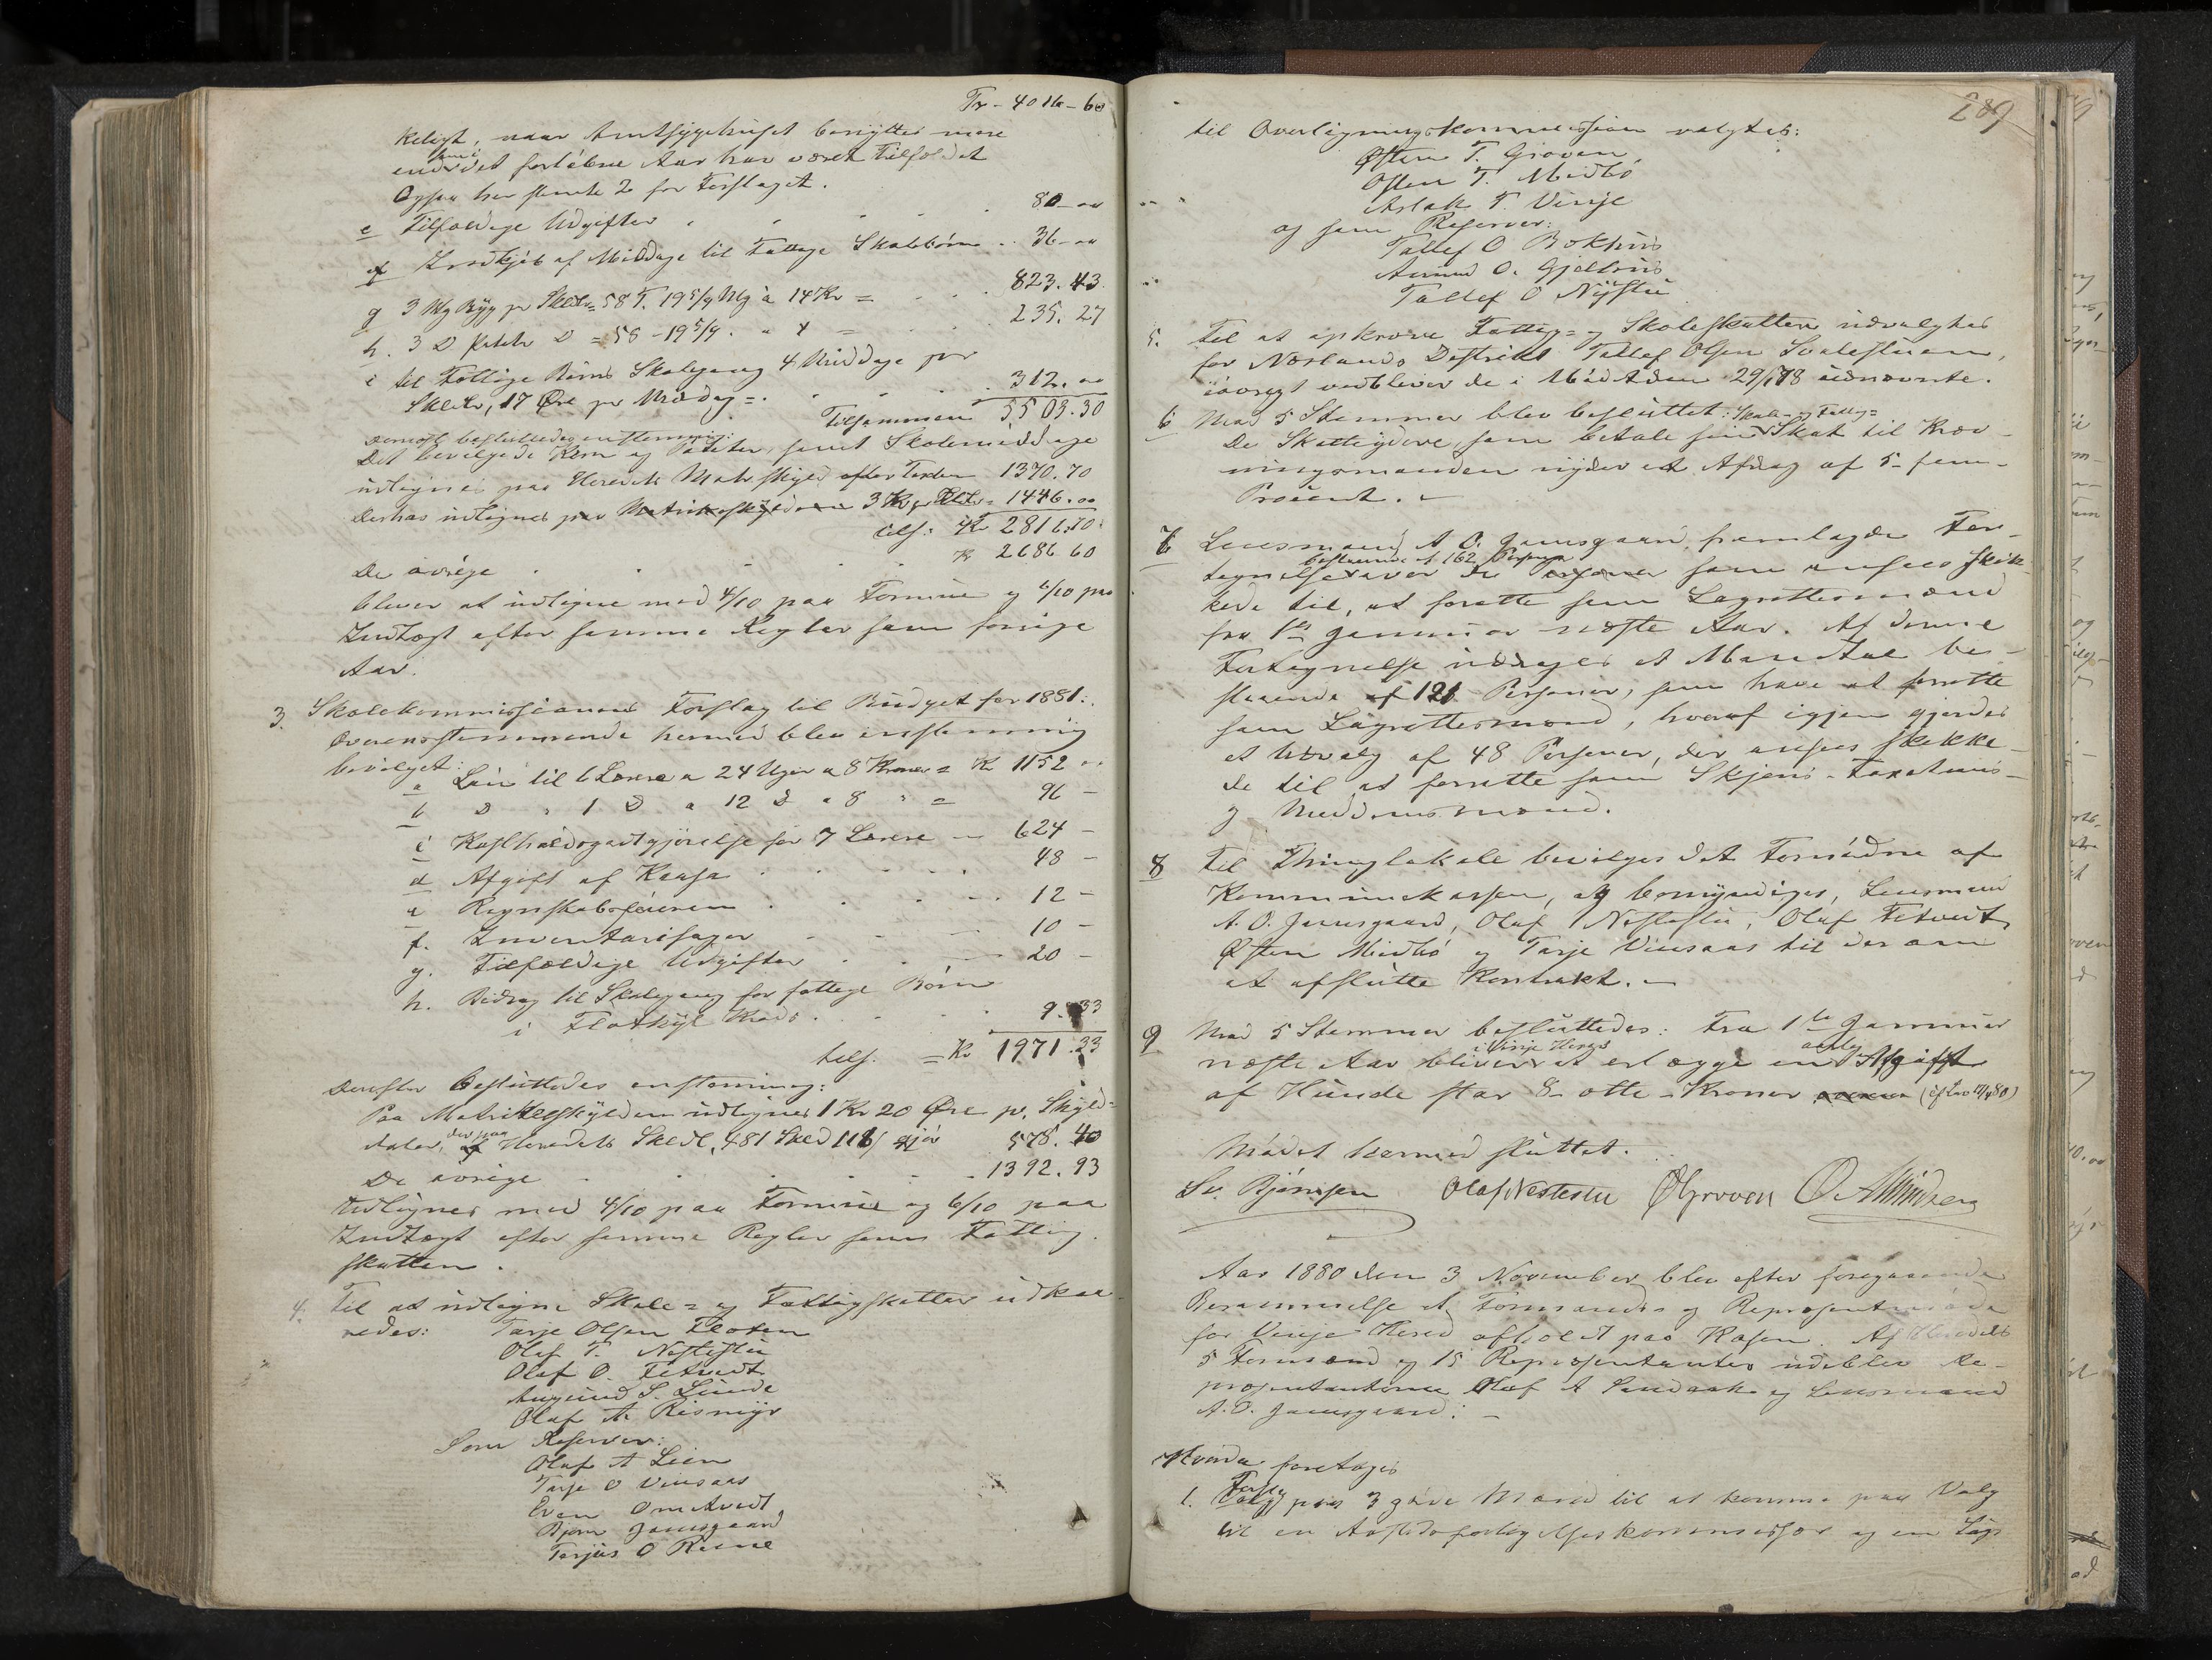 Tr - 4016 - 60
keligt, naar Amtssygehuset benyttes mere
end i det forløbne Aar har været Tilfældet
Ogsaa her stemte 2 for Forslaget.
e Tilfældige Udgifter . . . . 80-00
f Indkjøb af Middage til Fattige Skolebørn .. 36-00
g 3 Mg Byg pr Skdlr = 58 T. 19 5/9 Mg à 14 Kr = . . . 823.43
h. 3 D Poteter D = 58 - 19 5/9 . " 4 = . . 235.27
i til Fattige Børns Skolegang 4 Middage pr
Skdlr, 17 Øre pr Middag = . . . . 312.00
Tilsammen 5503.30
Dernæst besluttedes enstemmig:
Det bevilgede Korn og Poteter, samt Skolemiddage
udlignes paa Heredets Matr.skyld efter Taxten 1370.70
Derhos udlignes paa Matrikelskylden 3 Kr pr Skdlr = 1446.00
tils: Kr 2816.70
De øvrige . . . . Kr 2686 60
bliver at udligne med 4/10 paa Formue og 6/10 paa
Indtægt efter samme Regler som forrige
Aar.
3. Skolekommissionens Forslag til Budget for 1881:
Overensstemmende hermed blev enstemmig
bevilget:
a Løn til 6 Lærere a 24 Uger a 8 Kroner = Kr 1152 "
b D " 1 D a 12 D a 8 " = 96 -
c Kostholdsgodtgjørelse for 7 Lærere - 624 -
d Afgift af Kassa . . . . 48 -
e Regnskabsføreren . . . . 12 -
f. Inventariesager - - - 10 -
g. Tilfældige Udgifter . . . 20 -
h. Bidrag til Skolegang for fattige Børn
i Flothyl Kreds . . . . 9.33
tils. = Kr 1971.33
Derefter besluttedes enstemmig:
Paa Matrikelskylden udlignes 1 Kr 20 Øre pr. Skyld-
daler, der paa Heredets Skdlr, 481 gjør 578.40
De øvrige - - - - 1392.93
Udlignes med 4/10 paa Formue og 6/10 paa
Indtægt efter samme Regler som Fattig-
skatten.
4. Til at udligne Skole- og Fattigskatter udkaa-
redes: Tarje Olsen Floten
Olaf T. Nestestu
Olaf O. Fetvedt
Augund S. Lunde
Olaf A. Rismyr
Som Reserver:
Olaf A Lien
Tarje O Vinsaas
Even Omtvedt
Bjørn Jamsgaard
Torjus O Kleve
289
til Overligningskommission valgtes:
Østen T. Groven
Østen T. Midtbø
Aslak T. Vinje
og som Reserver:
Tallef O Bokhus
Aanund O. Gjelhus
Tallef O Nystu
5. Til at opkræve Fattig- og Skoleskatten udvalgtes
for Næslands Destrikt Tallef Olsen Svalestuen,
iøvrigt vedbliver de i Møde den 29/1 78 udnævnte.
6 Med 5 Stemmer blev besluttet:
De Skatteydere, som betale sin Skole- og Fattig- Skat til Kræv-
ningsmanden nyder et Afdrag af 5 - fem -
Procent. -
7 Lensmand A O. Jamsgaard fremlagde For-
tegnelse bestaaende af 162 Personer over de Personer som ansees skik-
kede til, at forrette som Lagrettesmænd
fra 1ste Januar næste Aar. Af denne
Fortegnelse uddroges et Mandtal be-
staaende af 121 Personer, som have at forrette
som Lagrettesmænd, hvoraf igjen gjordes
et Udvalg af 48 Personer, der ansees skikke-
de til at forrette som Skjøns- Taxations-
og Meddomsmænd.
8 Til Thinglokale bevilges det Fornødne af
Kommunekassen, og bemyndiges, Lensmand
A. O. Jamsgaard, Olaf Nestestu, Olaf Fetvedt
Østen Midtbø og Tarje Vinsaas til derom
at afslutte Kontrakt. -
9 Med 5 Stemmer besluttedes: Fra 1ste Januar
næste Aar bliver i Vinje Hered at erlægge en aarlig Afgift
af Hunde stor 8 - otte - Kroner
Mødet hermed sluttet.
Sv. Bjørnsen Olaf Nestestu ØGrooven
Aar 1880 den 3 November blev efter foregaaende
Berammelse et Formands- og Repræsentmøde
for Vinje Hered afholdt paa Kosen. Af Heredets
5 Formænd og 15 Repræsentanter udeblev Re-
præsentanterne Olaf A Sandaak og Lensmand
A. O. Jamsgaard: -
Hvorda foretoges
1. Første Valg paa 3 gode Mænd til at komme paa Valg
til en Kommissær og en Lag-